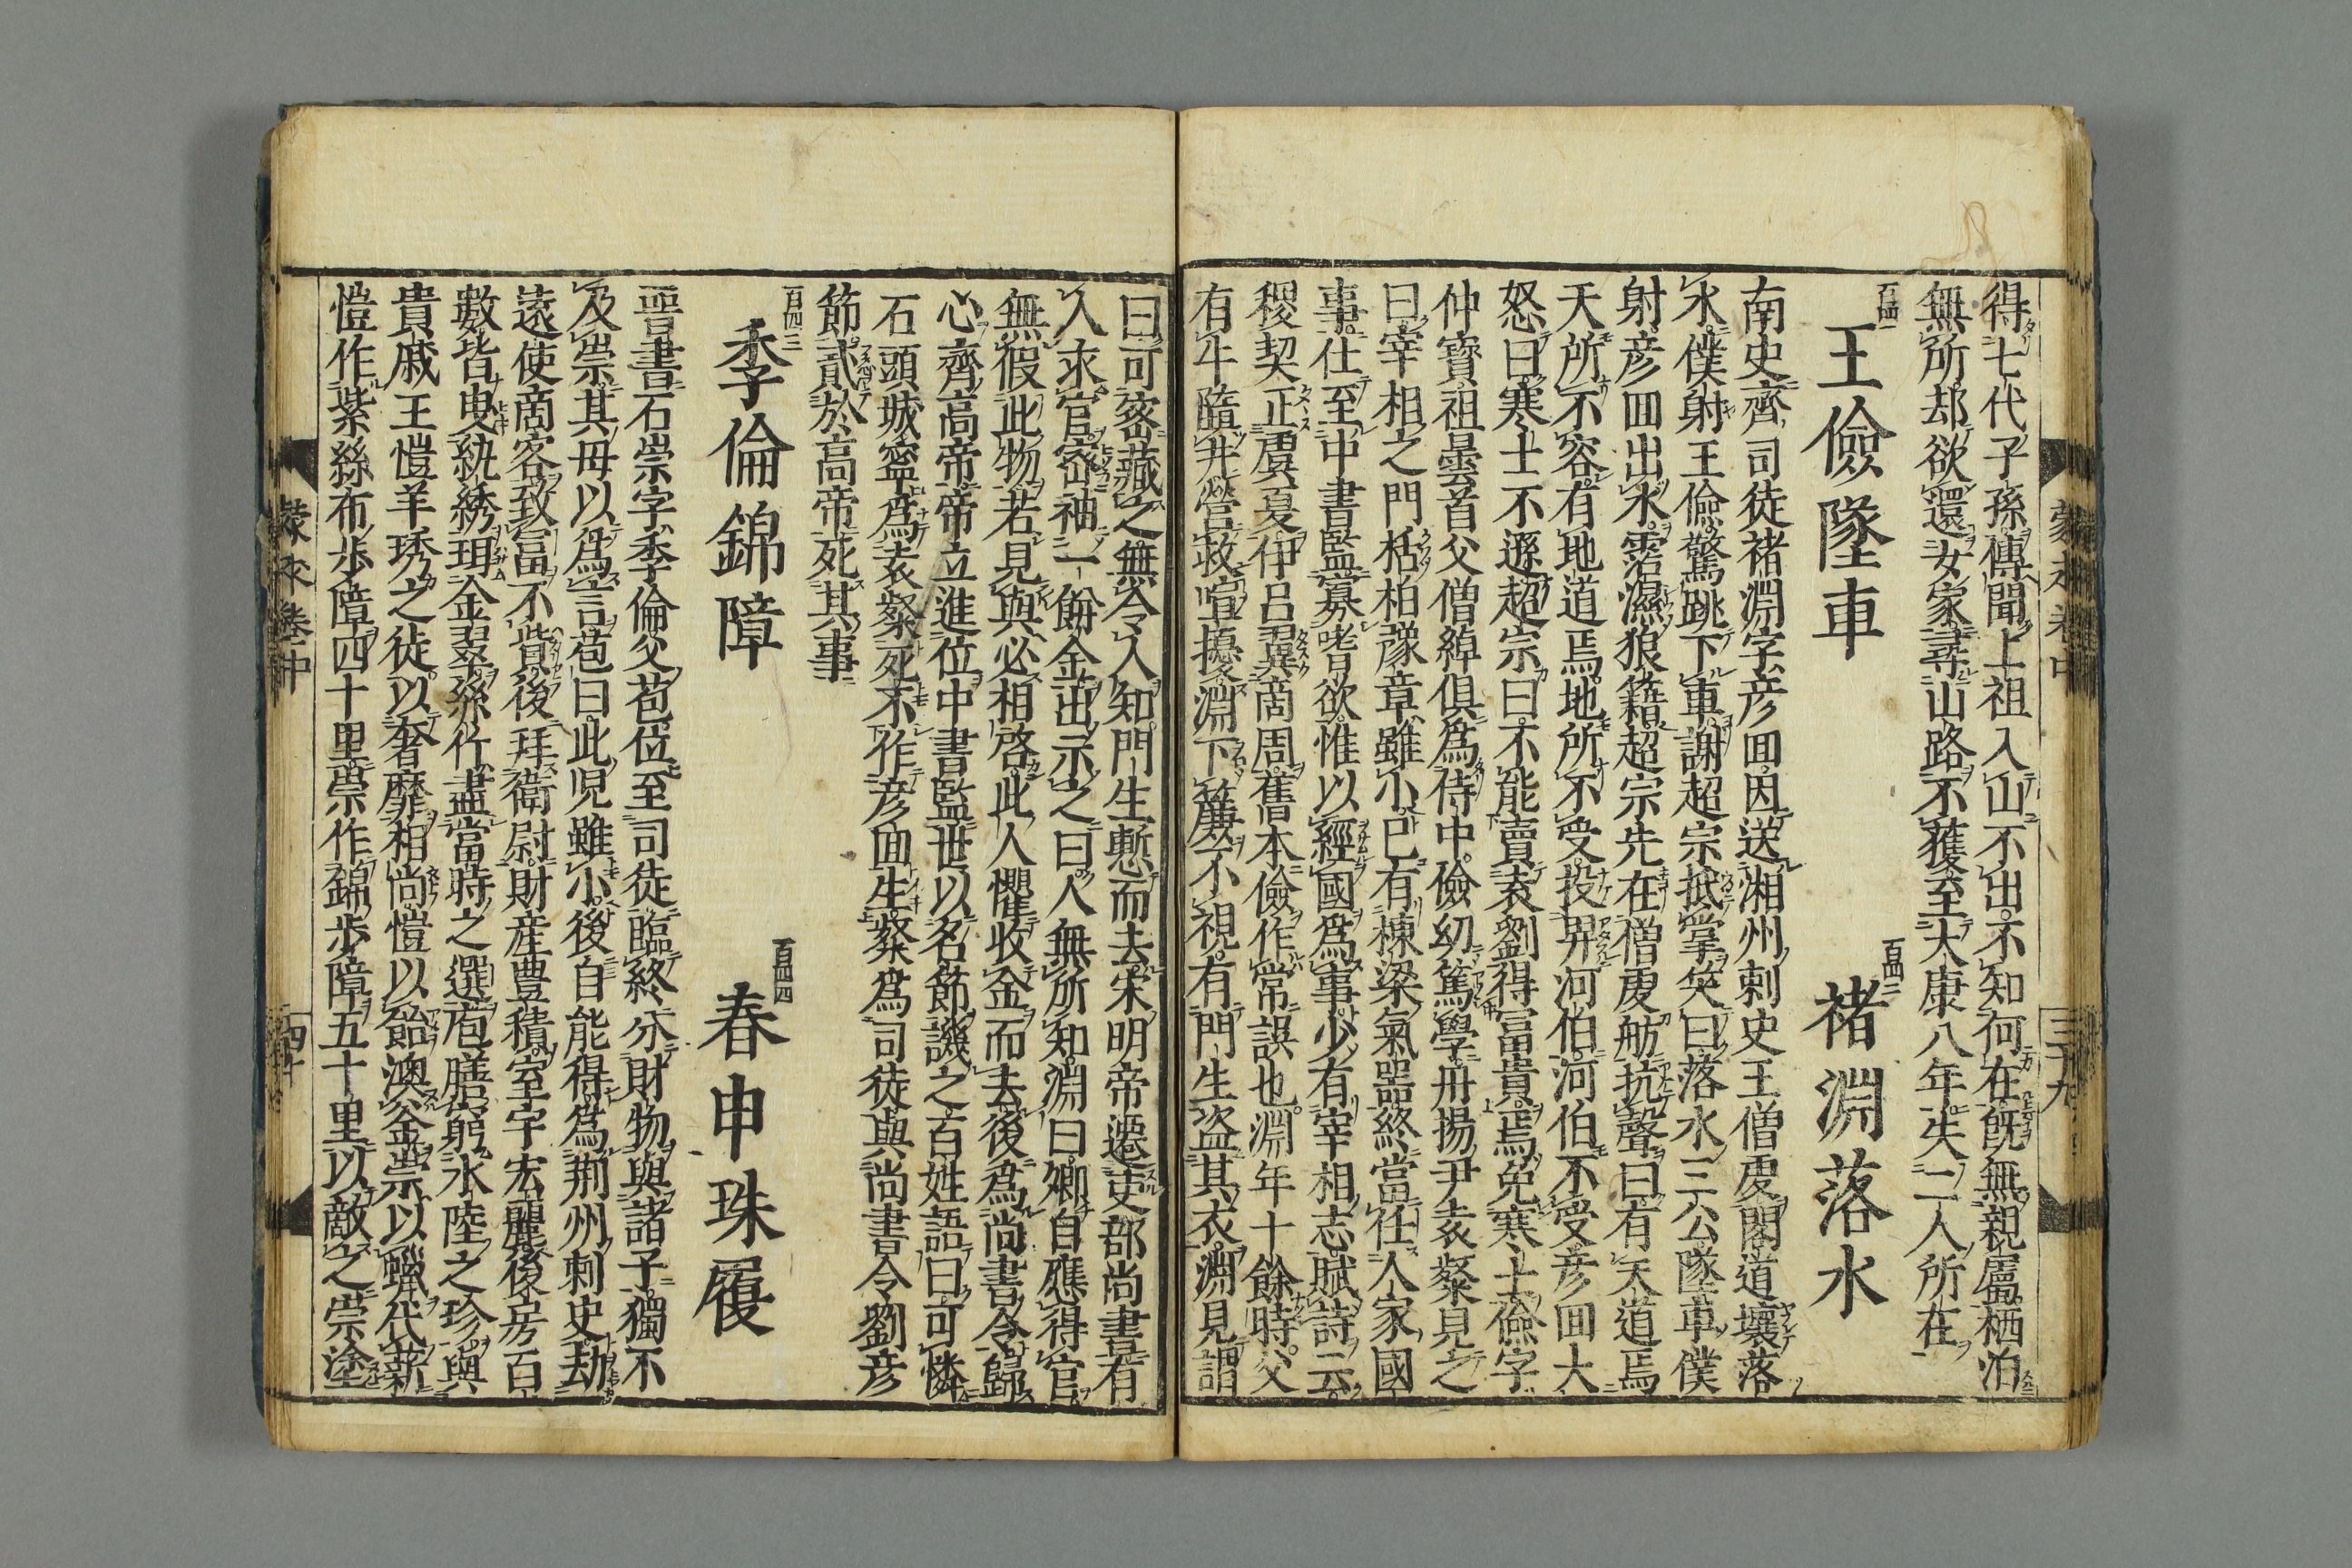 得七代子孫傳聞上祖入山不出不知何在旣無親屬栖泊
無所却欲還女家尋山路不獲至大康八年失二人所在
百四一
王儉墜車
百四二
褚淵落水
南史齊司徒褚淵字彦回因送湘州刺史王僧虔閣道壞落
水僕射王儉驚跳下車謝超宗抵掌笑曰落水三公墜車僕
射彦回出水霑濕狼籍超宗先在僧虔舫抗聲曰有天道焉
天所不容有地道焉地所不受投畀河伯河伯不受彦回大
怒曰寒士不遜超宗曰不能賣袁劉得冨貴焉免寒士儉字
仲寶祖曇首父僧綽俱爲侍中儉幼篤學丹揚尹袁粲見之
曰宰相之門栝柏豫章雖小已有棟梁氣器終當任人家國
事仕至中書監寡嗜欲惟以經國爲事少有宰相志賦詩云
稷契正虞夏伊呂翼商周舊本儉作常誤也淵年十餘時父
有牛隨井營救喧擾淵下簾不視有門生盗其衣淵見謂
蒙求卷中
三十九
曰可密藏之無令人知門生慙而去宋明帝遷吏部尚書有
人求官密袖一餅金出示之曰人無所知淵曰卿自應得官
無假此物若見與必相啓此人懼收金而去後爲尚書令歸
心齊高帝帝立進位中書監世以名節譏之百姓語曰可憐
石頭城寧爲袁粲死不作彦回生粲爲司徒與尚書令劉彦
節貳於高帝死其事
百四三
季倫錦障
百四四
春申珠履
晋書石崇字季倫父苞位至司徒臨終分財物與諸子獨不
及崇其母以爲言苞曰此児雖小後自能得爲荆州刺史劫
遠使商客致富不貲後拜衞尉財産豊積室宇宏麗後房百
數皆曳紈綉珥金翠絲竹盡當時之選庖膳窮水陸之珍與
貴戚王愷羊琇之徒以奢靡相尚愷以飴澳釜崇以蠟代薪
愷作紫絲布歩障四十里崇作錦歩障五十里以敵之崇塗
蒙求卷中
四十